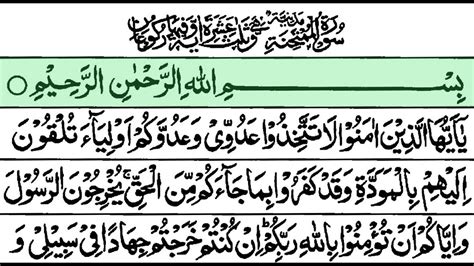 سُوْرَةُ الْمُمْتَحِنَةِ مَدَنِيَّةٌ وَّهِيَ ثَلٰثَ عَشَرَةَ اٰيَةً وَّفِيْهَا رُكُوْعَانِ
بِسْمِ اللّٰهِ الرَّحْمٰنِ الرَّحِيْمِ ○
يٰۤاَيُّهَا الَّذِيْنَ اٰمَنُوْا لَا تَتَّخِذُوْا عَدُوِّيْ وَعَدُوَّكُمْ اَوْلِيَآءَ تُلْقُوْنَ
اِلَيْهِمْ بِالْمَوَدَّةِ وَقَدْ كَفَرُوْا بِمَا جَآءَكُمْ مِّنَ الْحَقِّ ۚ يُخْرِجُوْنَ الرَّسُوْلَ
وَاِيَّاكُمْ اَنْ تُؤْمِنُوْا بِاللّٰهِ رَبِّكُمْ ؕ اِنْ كُنْتُمْ خَرَجْتُمْ جِهَادًا فِيْ سَبِيْلِيْ وَ